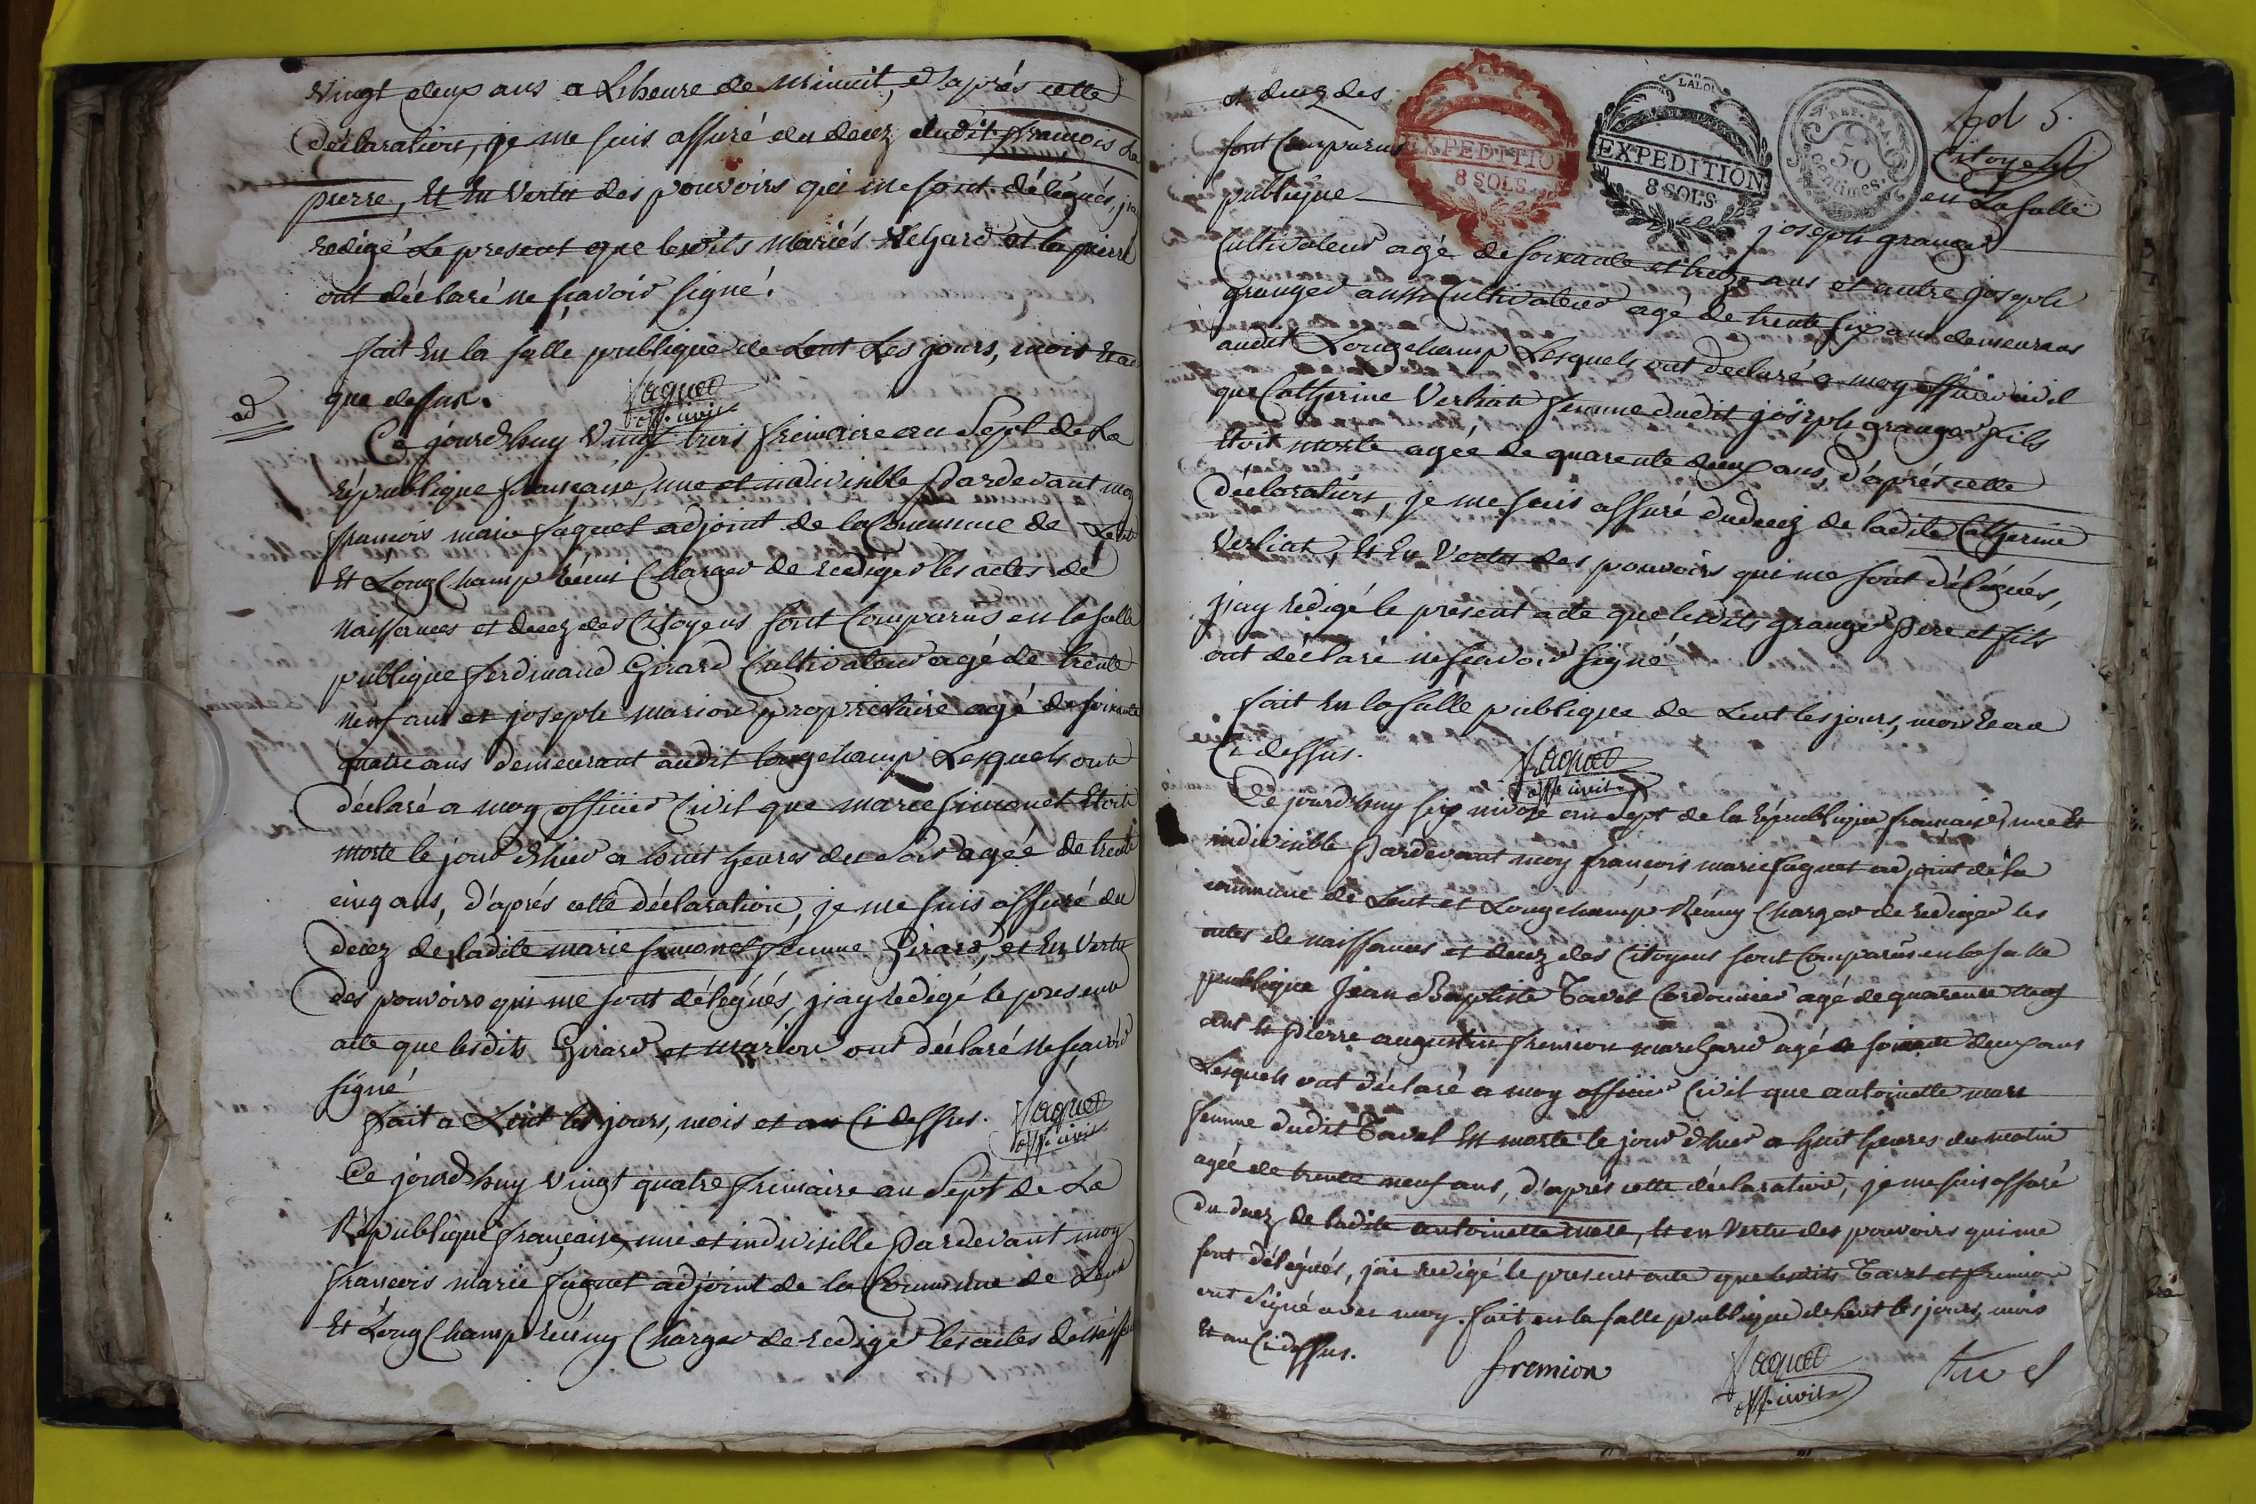 vingt deux ans a Lheure de minuit, d'aprés cette
déclaration, je me suis assuré du decez dudit francois La
pierre, Et En Vertu des pouvoirs qui me sont délégués, j'ai
redigé Le present que lesdits mariés et la pierre
ont déclaré ne scavoir signé.
fait En la salle publique de Lent Les jours, mois Et an
que dessus.
faquet
off. civil
ad
Ce jourdhuy Vingt trois frimaire an Sept de La
république française, une et indivisible Pardevant moy
francois marie faquet adjoint de la Commune de Lent
Et LongChamp réuni Charger de rediger les actes de
naissances et decez des Citoyens sont Comparus en la salle
publique ferdinand Girard Cultivateur agé de trente
neuf ans et joseph marion propriétaire agé de soixante
quatre ans demeurant audit longchamp Lesquels ont
déclaré a moy officier Civil que marie simonet Etoit
morte le jour d'hier a huit heures du Soir agée de trente
cinq ans, d'aprés cette déclaration, je me suis assuré du
decez de ladite marie simonet femme Girard, et En Vertu
des pouvoirs qui me sont délégués, j'ay redigé le present
acte que lesdits Girard et marion ont déclaré ne scavoir
signé
fait a Lent les jours, mois et an Ci dessus.
faquet
off. civil
Ce jourdhuy Vingt quatre frimaire an Sept de La
République française, une et indivisible Pardevant moy
francois marie faquet adjoint de la Commune de Lent
Et LongChamp réuny Charger de rediger les actes de naissan
fol 5.
et decez des Citoyens
sont Comparus en La salle
publique joseph granger
LALOI
EXPEDITION
8 SOLS
LALOI
EXPEDITION
8 SOLS
REP. FRA.
50
Centimes.
Cultivateur agé de soixante et treize ans et autre joseph
granger aussi Cultivateur agé de trente six ans demeurant
audit Longchamp Lesquels ont déclaré a moy officier civil
que Catherine Verliat femme dudit joseph granger fils
Etoit morte agée de quarente deux ans, d'aprés cette
déclaration, je me suis assuré du decez de ladite Catherine
Verliat, Et En Vertu des pouvoirs qui me sont délégués,
j'ay redigé le présent acte que lesdits granger Pere et fils
ont déclaré ne scavoir signé
fait En la salle publique de Lent les jours, mois Et an
Ci dessus.
faquet
off. civil
Ce jourdhuy six nivose an Sept de la République française, une Et
indivisible Pardevant moy françois marie faquet adjoint de la
commune de Lent et Longchamp Réuny Charger de rediger les
actes de naissances et decez des Citoyens sont Comparus en la salle
publique Jean Baptiste Tavel Cordonnier agé de quarente neuf
ans Et pierre augustin fremion marchand agé de soixante deux ans
Lesquels ont déclaré a moy officier Civil que antoinette
femme dudit Tavel Est morte le jour d'hier a huit heures du matin
agée de trente neuf ans, d'aprés cette déclaration, je me suis assuré
du decez de ladite antoinette, Et en Vertu des pouvoirs qui me
sont délégués, j'ai redigé le present acte que lesdits Tavel et fremion
ont signé avec moy. fait en la salle publique de Lent les jours, mois
Et an Ci dessus.
fremion
faquet
off. civil
tavel